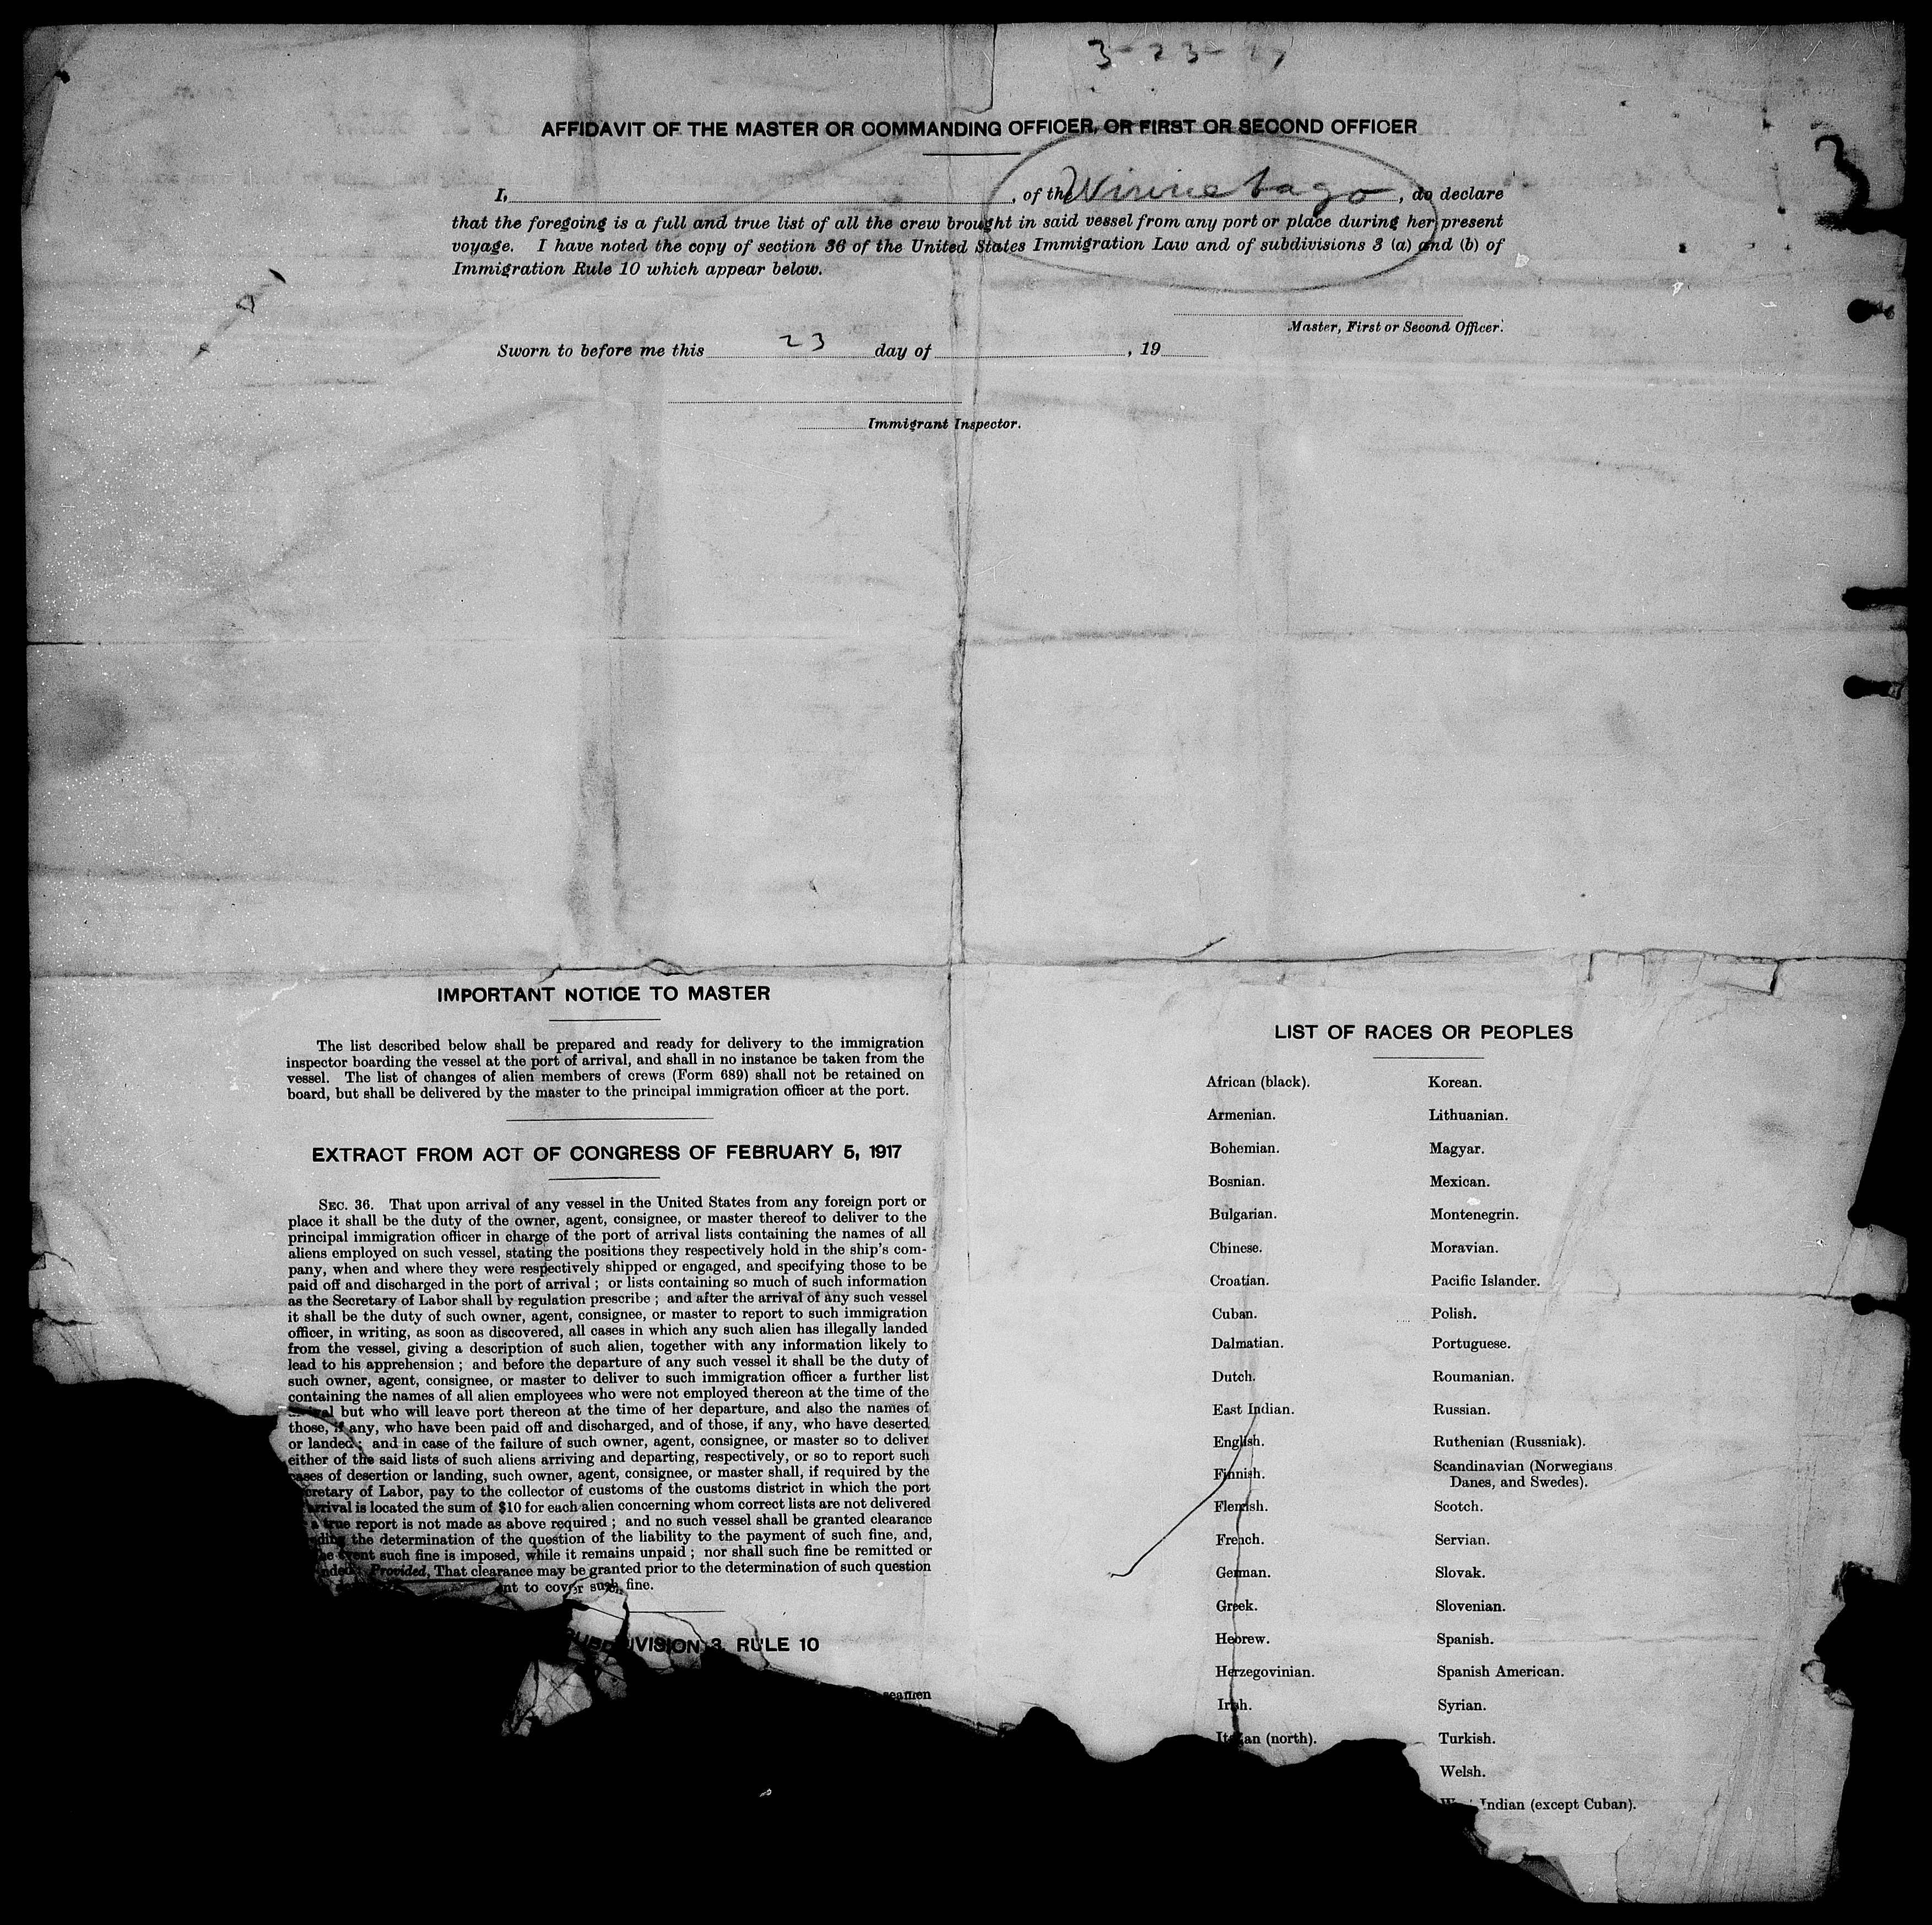 3-23-27
3
AFFIDAVIT OF THE MASTER OR COMMANDING OFFICER, OR FIRST OR SECOND OFFICER
I, , of the Winnebago, do declare
that the foregoing is a full and true list of all the crew brought in said vessel from any port or place during her present
voyage. I have noted the copy of section 36 of the United States Immigration Law and of subdivisions 3 (a) and (b) of
Immigration Rule 10 which appear below.
Master, First or Second Officer.
Sworn to before me this 23 day of , 19
Immigrant Inspector.
IMPORTANT NOTICE TO MASTER
The list described below shall be prepared and ready for delivery to the immigration
inspector boarding the vessel at the port of arrival, and shall in no instance be taken from the
vessel. The list of changes of alien members of crews (Form 689) shall not be retained on
board, but shall be delivered by the master to the principal immigration officer at the port.
EXTRACT FROM ACT OF CONGRESS OF FEBRUARY 5, 1917
SEC. 36. That upon arrival of any vessel in the United States from any foreign port or
place it shall be the duty of the owner, agent, consignee, or master thereof to deliver to the
principal immigration officer in charge of the port of arrival lists containing the names of all
aliens employed on such vessel, stating the positions they respectively hold in the ship's com-
pany, when and where they were respectively shipped or engaged, and specifying those to be
paid off and discharged in the port of arrival; or lists containing so much of such information
as the Secretary of Labor shall by regulation prescribe; and after the arrival of any such vessel
it shall be the duty of such owner, agent, consignee, or master to report to such immigration
officer, in writing, as soon as discovered, all cases in which any such alien has illegally landed
from the vessel, giving a description of such alien, together with any information likely to
lead to his apprehension; and before the departure of any such vessel it shall be the duty of
such owner, agent, consignee, or master to deliver to such immigration officer a further list
containing the names of all alien employees who were not employed thereon at the time of the
arrival but who will leave port thereon at the time of her departure, and also the names of
those, if any, who have been paid off and discharged, and of those, if any, who have deserted
or landed; and in case of the failure of such owner, agent, consignee, or master so to deliver
either of the said lists of such aliens arriving and departing, respectively, or so to report such
cases of desertion or landing, such owner, agent, consignee, or master shall, if required by the
Secretary of Labor, pay to the collector of customs of the customs district in which the port
arrival is located the sum of $10 for each alien concerning whom correct lists are not delivered
a true report is not made as above required; and no such vessel shall be granted clearance
the determination of the question of the liability to the payment of such fine, and,
event such fine is imposed, while it remains unpaid; nor shall such fine be remitted or
Provided, That clearance may be granted prior to the determination of such question
to cover such fine.
SUBDIVISION 3, RULE 10
seamen
LIST OF RACES OR PEOPLES
African (black).
Armenian.
Bohemian.
Bosnian.
Bulgarian.
Chinese.
Croatian.
Cuban.
Dalmatian.
Dutch.
East Indian.
English.
Finnish.
Flemish.
French.
German.
Greek.
Hebrew.
Herzegovinian.
Irish.
Italian (north).
Korean.
Lithuanian.
Magyar.
Mexican.
Montenegrin.
Moravian.
Pacific Islander.
Polish.
Portuguese.
Roumanian.
Russian.
Ruthenian (Russniak).
Scandinavian (Norwegians
Danes, and Swedes).
Scotch.
Servian.
Slovak.
Slovenian.
Spanish.
Spanish American.
Syrian.
Turkish.
Welsh.
West Indian (except Cuban).